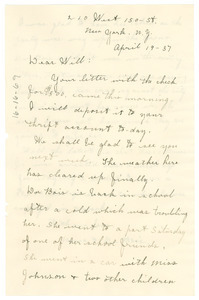 210 West 150-St.
New York. N.Y.
April 19-37
Dear Will:
Your letter with the check
for $ came this morning.
I will deposit it to your
thrift account to-day.
We shall be glad to see you
next week. The weather here
has cleared up finally.
Bair is back in school
after a cold which was troubling
her. She went to a part Saturday
of one of her school friends.
She went in a car with Miss
Johnson & two other children
16-16-67